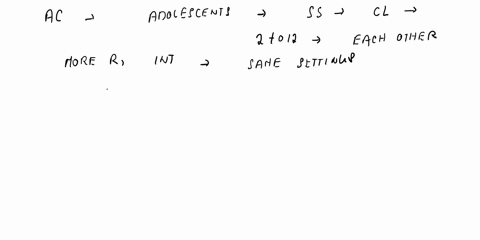 AC → ADOLESCENTS → SS → CL →
2 to 12 → EACH OTHER
MORE R, INT → SAME SETTINGS